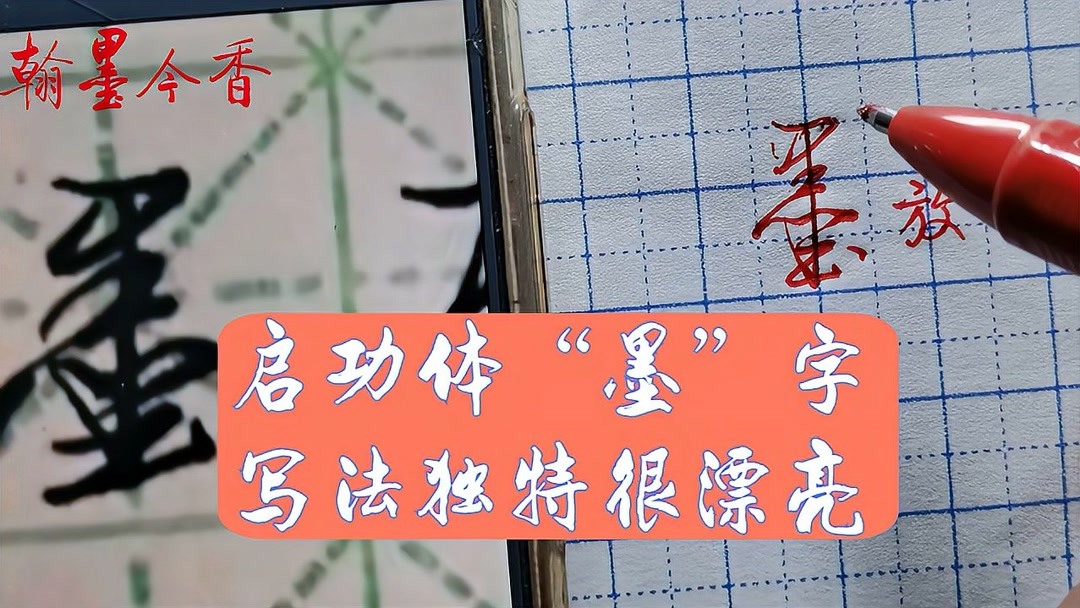 翰墨今香
墨
墨 放
启功体“墨”字
写法独特很漂亮